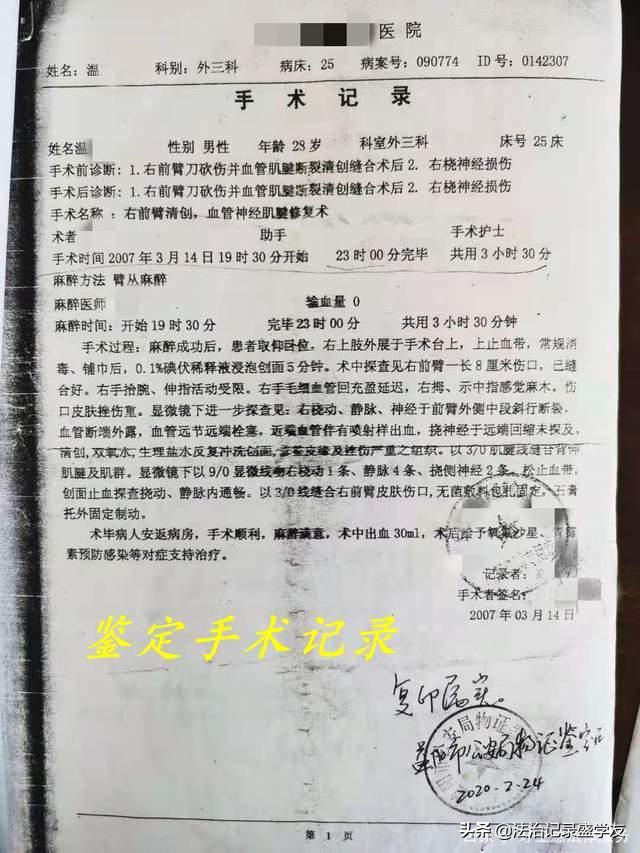 医院
姓名：温 科别：外三科 病床：25 病案号：090774 ID号：0142307
手术记录
姓名温 性别 男性 年龄 28岁 科室外三科 床号 25床
手术前诊断：1.右前臂刀砍伤并血管肌腱断裂清创缝合术后2. 右桡神经损伤
手术后诊断：1.右前臂刀砍伤并血管肌腱断裂清创缝合术后2. 右桡神经损伤
手术名称：右前臂清创，血管神经肌腱修复术
术者 助手 手术护士
手术时间 2007年3月14日19时30分开始 23时00分完毕 共用3小时30分
麻醉方法 臂丛麻醉
麻醉医师 输血量 0
麻醉时间：开始19时30分 完毕23时00分 共用3小时30分钟
手术过程：麻醉成功后，患者取仰卧位，右上肢外展于手术台上，上止血带，常规消
毒、铺巾后，0.1%碘伏稀释液浸泡创面5分钟。术中探查见右前臂一长8厘米伤口，已缝
合好。右手拾腕、伸指活动受限。右手毛细血管回充盈延迟，右拇、示中指感觉麻木。伤
口皮肤挫伤重。显微镜下进一步探查见：右桡动、静脉、神经于前臂外侧中段斜行断裂，
血管断端外露，血管远节远端栓塞，近端血管伴有喷射样出血，挠神经于远端回缩未探及。
清创，双氧水，生理盐水反复冲洗创面，挫伤严重之组织。以3/0肌腱线缝合背伸
肌腱及肌群。显微镜下以9/0显微线吻右桡动1条、静脉4条、挠侧神经2条。松止血带，
创面止血探查挠动、静脉内通畅。以3/0线缝合右前臂皮肤伤口，无菌敷料包扎固定，石膏
托外固定制动。
术毕病人安返病房，手术顺利，麻醉满意，术中出血30ml，术后给予氧氟沙星、青霉
素预防感染等对症支持治疗。
记录者：
手术者签名：
2007年03月14日
鉴定手术记录
复印属实。
益阳市公安局物证鉴定
2020.2.24
第 1 页
头条 @法治记录盛学友